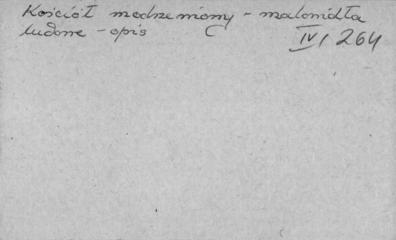 Kościół modrzewiowy - malowidła
ludowe - opis C IV/264